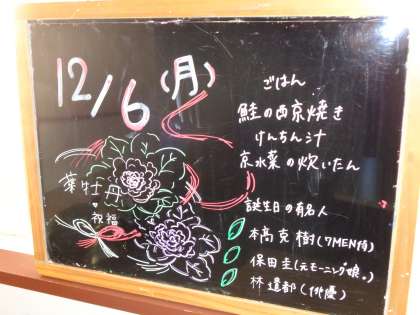 12/6(月)
ごはん
鮭の西京焼き
けんちん汁
京水菜の炊いたん
葉牡丹
祝福
誕生日の有名人
本髙克樹(7MEN侍)
保田圭(元モーニング娘。)
林遣都(俳優)